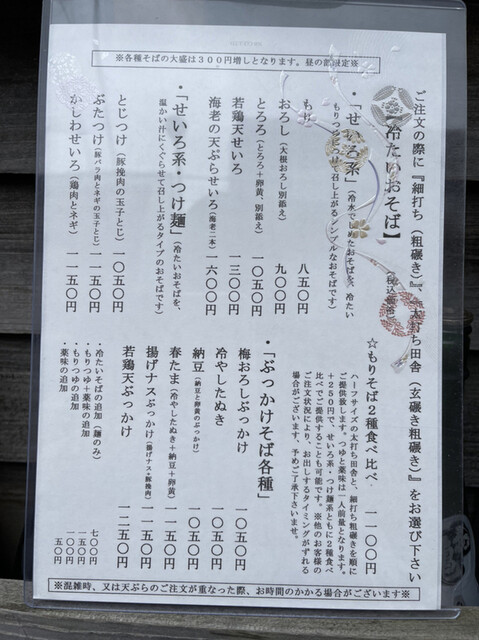 ※各種そばの大盛は３００円増しとなります。昼の部限定※
ご注文の際に『細打ち（粗碾き）』、太打ち田舎（玄碾き粗碾き）』をお選び下さい
【冷たいおそば】（税込価格）
・「せいろ系」（冷水でしめたおそばを、冷たい
もりつゆにつけて召し上がるシンプルなおそばです）
もり　八五〇円
おろし（大根おろし別添え）　九〇〇円
とろろ（とろろ＋卵黄、別添え）　一〇五〇円
若鶏天せいろ　一三〇〇円
海老の天ぷらせいろ（海老二本）　一六〇〇円
・「せいろ系・つけ麺」（冷たいおそばを、
温かい汁にくぐらせて召し上がるタイプのおそばです）
とじつけ（豚挽肉の玉子とじ）　一〇五〇円
ぶたつけ（豚バラ肉とネギの玉子とじ）　一一五〇円
かしわせいろ（鶏肉とネギ）　一一五〇円
☆もりそば２種食べ比べ　一一〇〇円
ハーフサイズの太打ち田舎と、細打ち粗碾きを順に
ご提供致します。つゆと薬味は一人前量となります。
＋２５０円で、せいろ系・つけ麺系ともに２種食べ
比べでご提供することも可能です。※他のお客様の
ご注文状況により、お出しするタイミングがずれる
場合がございます、予めご了承下さいませ。
・「ぶっかけそば各種」
梅おろしぶっかけ　一〇五〇円
冷やしたぬき　一〇五〇円
納豆（納豆と卵黄のぶっかけ）　一〇五〇円
春たま（冷やしたぬき＋納豆＋卵黄）　一一五〇円
揚げナスぶっかけ（揚げナス・豚挽肉）　一一五〇円
若鶏天ぶっかけ　一二五〇円
・冷たいそばの追加（麺のみ）　七〇〇円
・もりつゆ＋薬味の追加　一五〇円
・もりつゆの追加　一〇〇円
・薬味の追加　五〇円
※混雑時、又は天ぷらのご注文が重なった際、お時間のかかる場合がございます※